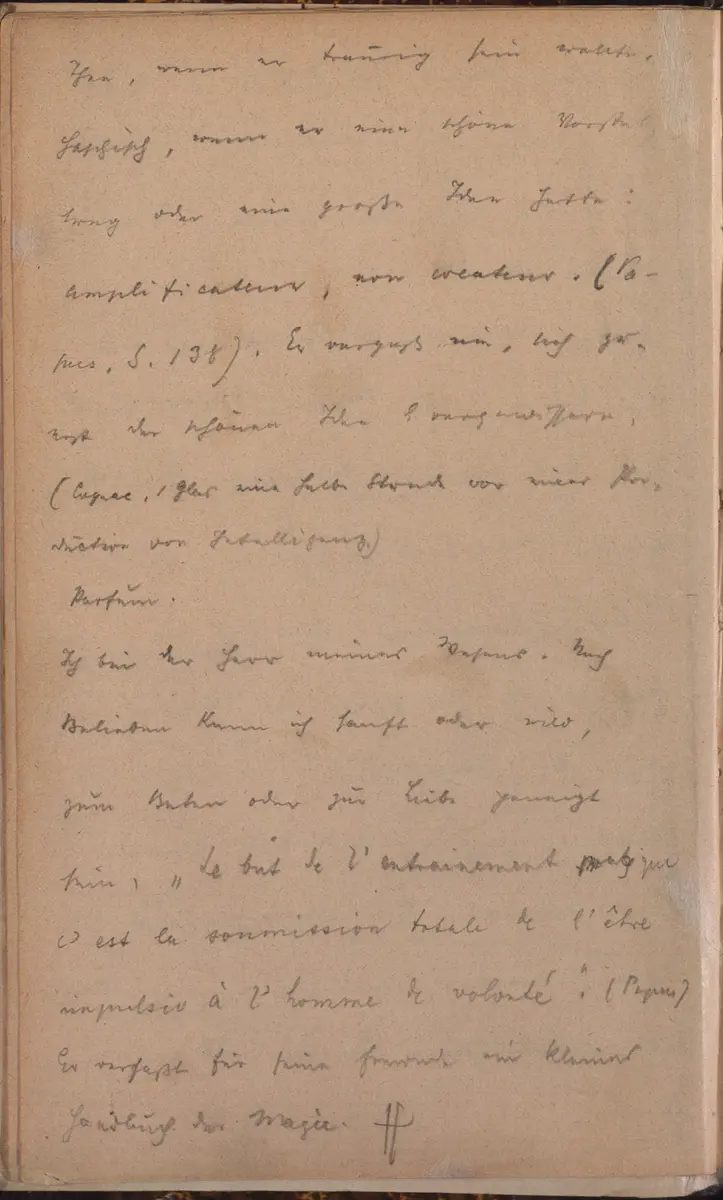 Thee, wenn er traurig sein wollte.
Haschisch, wenn er eine schöne Vorste
lung oder eine große Idee hatte:
amplificateur, non createur. (Pa-
pus, S. 138). Er vergaß nie, sich zu-
erst der schönen Idee vergewissern.
(Cognac, 1 Glas eine halbe Stunde vor einer Pro-
duction von Intelligenz.)
Parfüm.
Ich bin der Herr meines Wesens. Nach
Belieben kann ich sanft oder wild,
zum Beten oder zur Liebe geneigt
sein, „Le but de l'entrainement magique
c'est la soumission totale de l'être
impulsiv à l'homme de volonté". (Papus)
Er verfaßt für seine Freunde ein kleines
Handbuch der Magie.